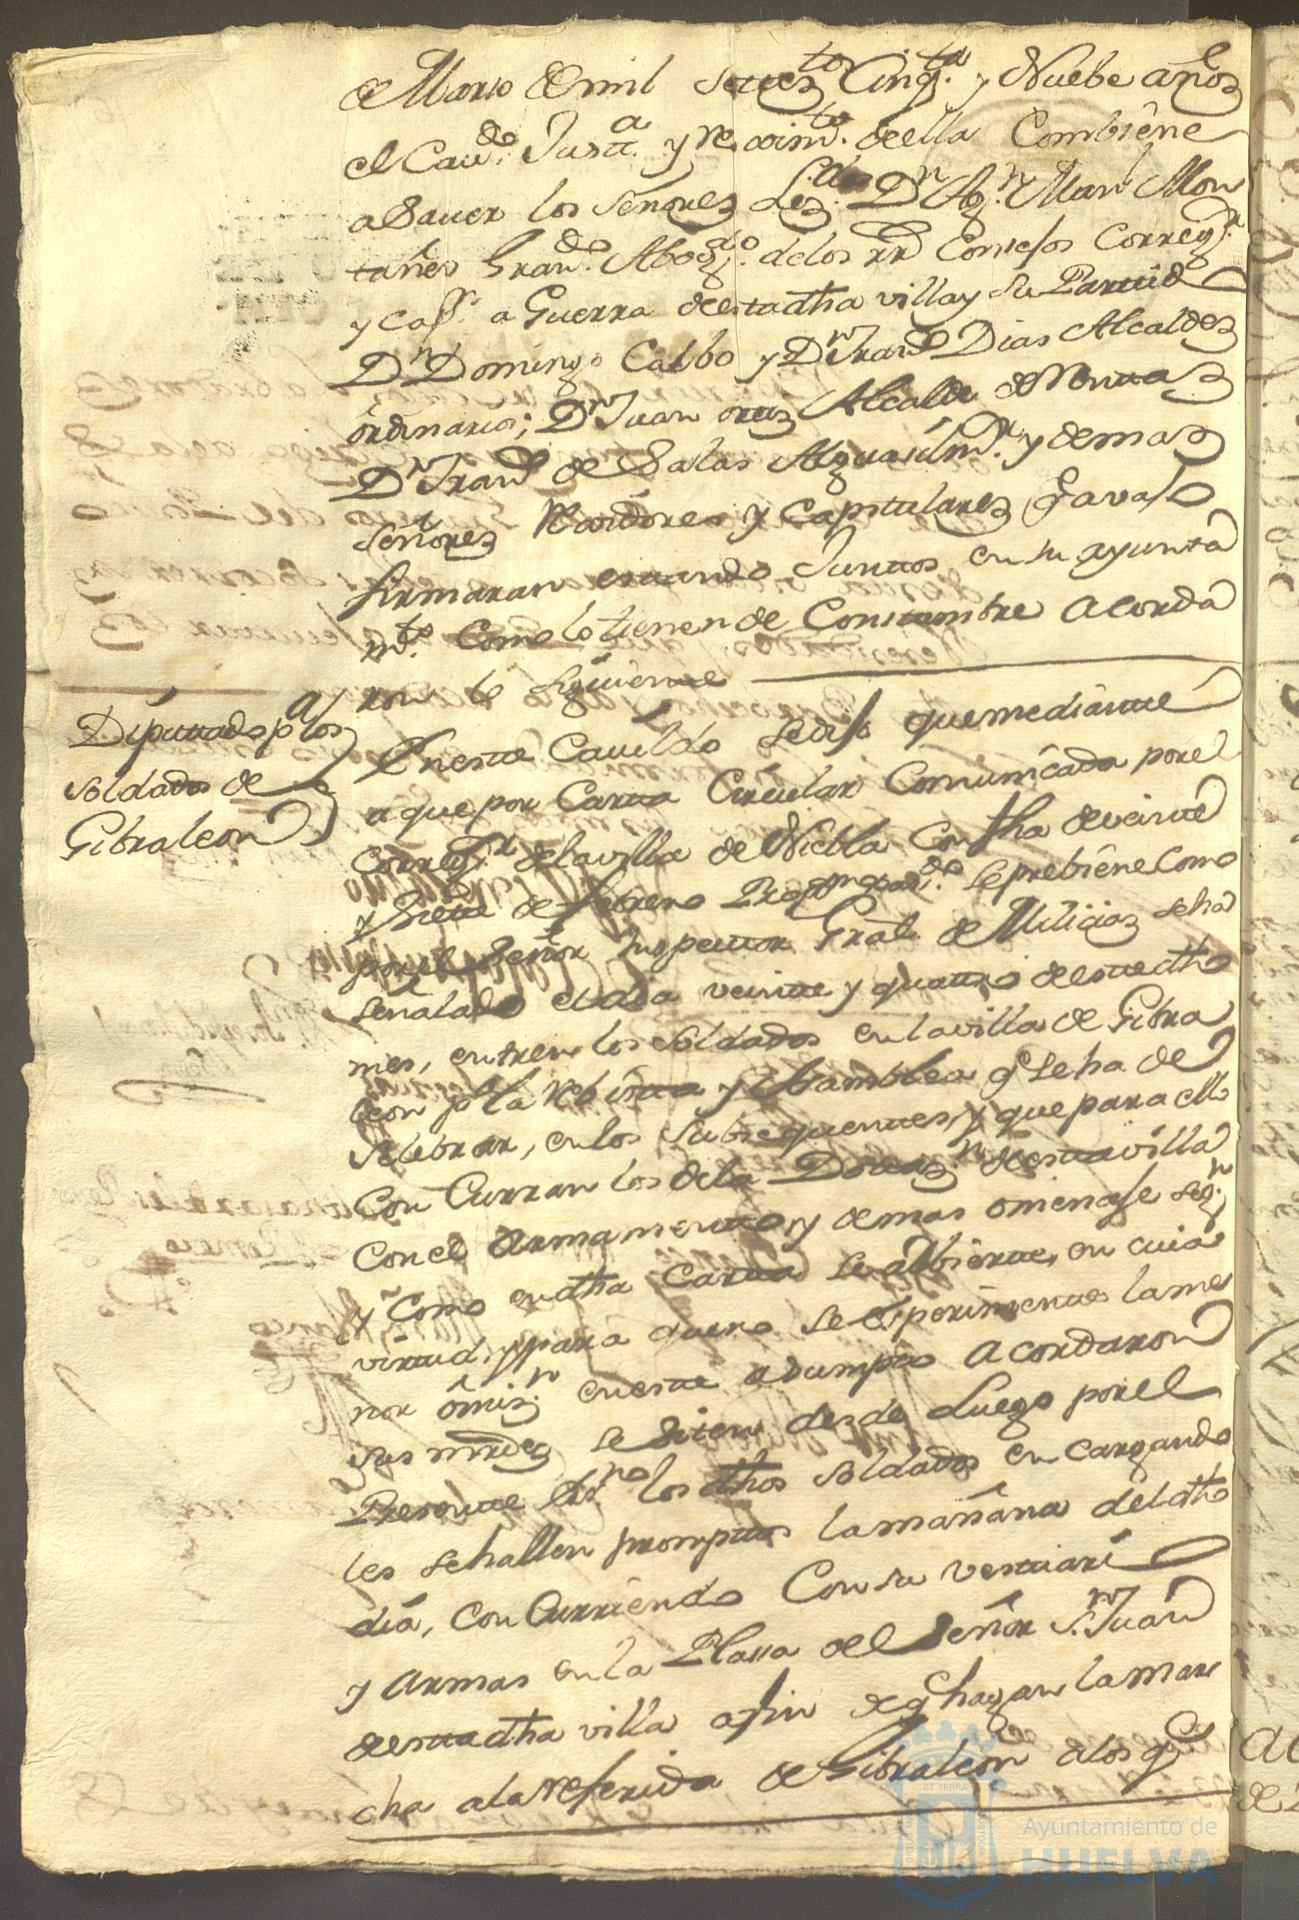 de Marso de mil Settez.tos Cinq.ta y Nuebe años
el Cav.do Justt.a y rexim.to de ella Combiene
a Saver los señores Lz.do Dn Ag.n Man.l Mon
tañes Gran.do Abog.do de los rr.s Consejos Correg.r
y Cap.n a Guerra de esta dha villa y su Partid
Dn Domingo Calbo y Dn Fran.co Dias Alcaldes
ordinarios; Dn Juan ortiz Alcalde de
Dn Fran.co de Salas Alguasil m.r y demas
señores Rexidores y Capitulares q avajo
firmaran estando Juntos en su ayunta
m.to Como lo tienen de Constumbre acorda
ron lo siguiente
Diputado p.a los
soldados de
Gibraleon
En este Cavildo se dijo que mediante
a que por Carta Circular Comunicada por el
Correg.r de la villa de Niebla Con fha de veinte
y Siete de febrero Prox.mo pas.do se prebiene Como
por el señor Inspector Gral de Milicias se ha
señalado el dia veinte y quatro de este dho
mes, entren los soldados en la villa de Gibra
leon p.a la rebista y Asamblea q se ha de
selebrar, en los subsequentes, y que para ello
Con Curran los de la Dotaz.n de esta villa
Con el armamento, y demas omenaje seg.n
y Como en dha Carta se adbierte, en cuia
virtud, y para que no se esperimente la me
nor omis.n en este asumpto acordaron
sus mrdes se siten desde Luego por el
Presente los dhos soldados en cargando
les se hallen promptos la mañana del dho
dia, con Curriendo Con su vestuari
y armas en la Plasa del señor S.n Juan
de esta dha villa afin de q hagan la mar
cha a la referida de Gibraleon a los q
Ayuntamiento de
HUELVA